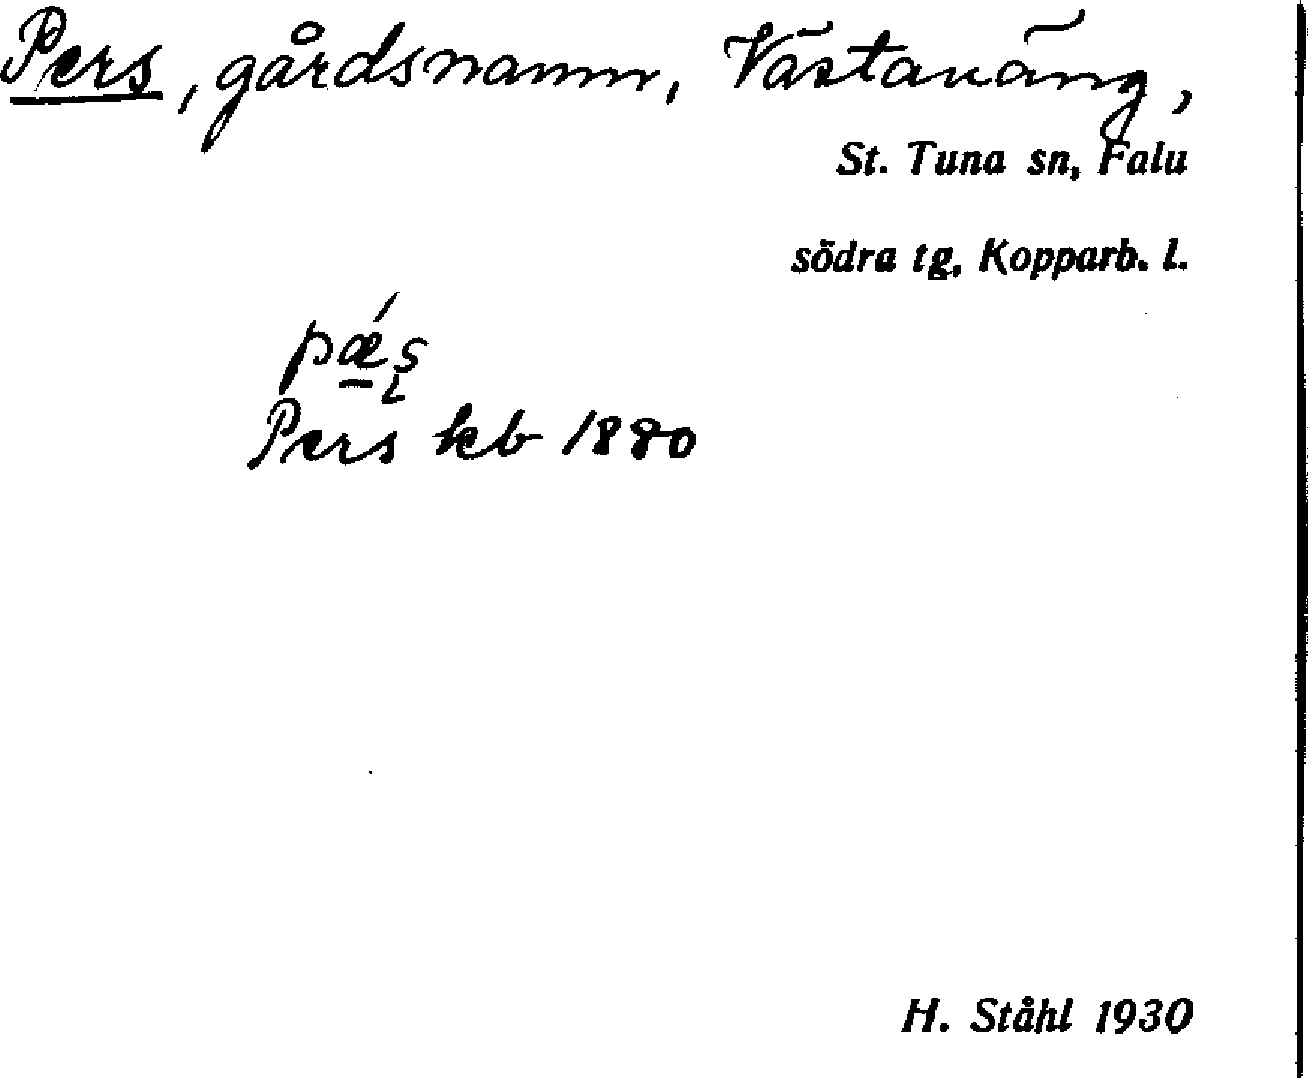 Pers, gårdsnamn, Västanäng,
St. Tuna sn, Falu
södra tg, Kopparb. l.
pǽ̠ʂ
Pers kb 1880
H. Ståhl 1930